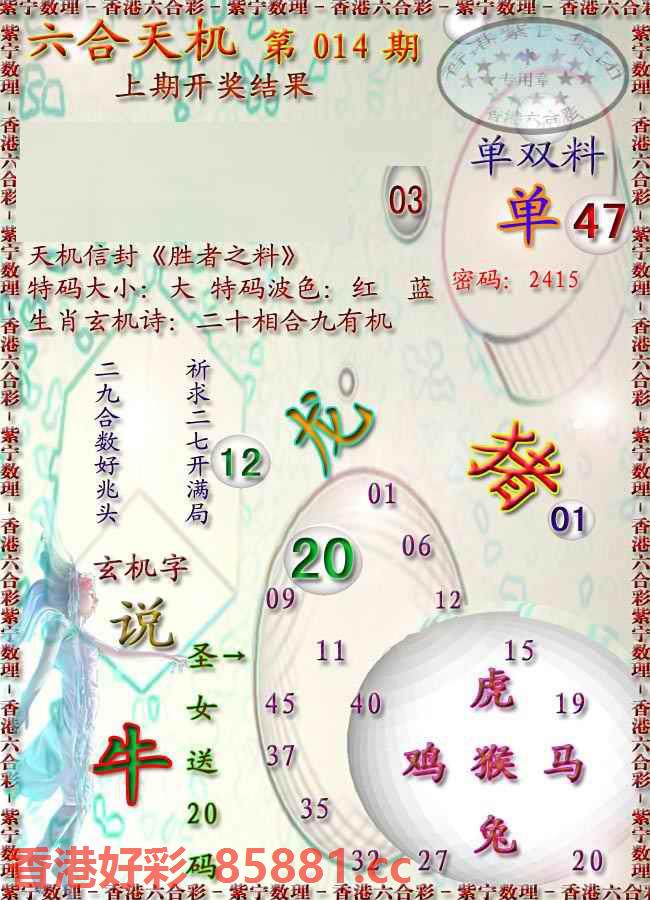 紫宁数理－香港六合彩－紫宁数理－香港六合彩－紫宁数理－香港六合彩
六合天机 第 014 期
上期开奖结果
专用章
香港六合彩
单双料
单 47
03
天机信封《胜者之料》
特码大小：大 特码波色：红 蓝
密码：2415
生肖玄机诗：二十相合九有机
二九合数好兆头
祈求二七开满局
12
龙
猪
01
玄机字
说
牛
圣→
女
送
20
码
01
20
06
09
12
11
15
45
40
虎
19
37
鸡 猴 马
35
兔
32
27
20
香港好彩 85881.cc
紫宁数理－香港六合彩－紫宁数理－香港六合彩－紫宁数理－香港六合彩